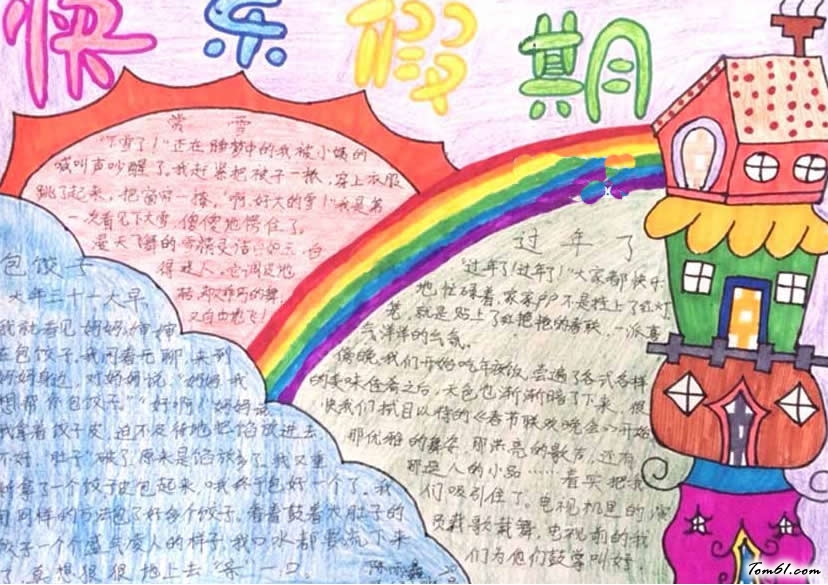 快乐假期
赏雪
"下雪了!"正在睡梦中的我被小姨的
喊叫声吵醒了。我赶紧把被子一掀,穿上衣服
跳了起来,把窗帘一撩,"啊,好大的雪!"我是第
一次看见下大雪,傻傻地愣住了。
漫天飞舞的雪
得迷人。它调皮地
又自由地飞!
包饺子
大年三十一大早,
我就看见妈妈、婶婶
在包饺子,我闲着无聊,来到
妈妈身边,对妈妈说:"妈妈,我
想帮你包饺子。""好啊!"妈妈说。
我拿着饺子皮,迫不及待地把馅放进去
不好,"肚子"破了,原来是馅放多了。我又重
新拿了一个饺子皮包起来,哦,终于包好一个了。我
用同样的方法包了好多个饺子。看着鼓着大肚子的
饺子一个个盛气凌人的样子,我口水都要流下来
了,真想狠狠地上去"咬"一口。
过年了
"过年了!过年了!"大家都快乐
地忙碌着,家家户户不是挂上了红灯
笼,就是贴上了红艳艳的春联,一派喜
气洋洋的气氛。
傍晚,我们开始吃年夜饭,尝遍了各式各样
的美味佳肴之后,天色也渐渐暗了下来,很
快我们拭目以待的《春节联欢晚会》开始
那优雅的舞姿,那洪亮的歌声,还有
那逗人的小品……看实把我
们吸引住了。电视机里的演
员载歌载舞,电视前的我
们为他们鼓掌叫好。
Tom61.com